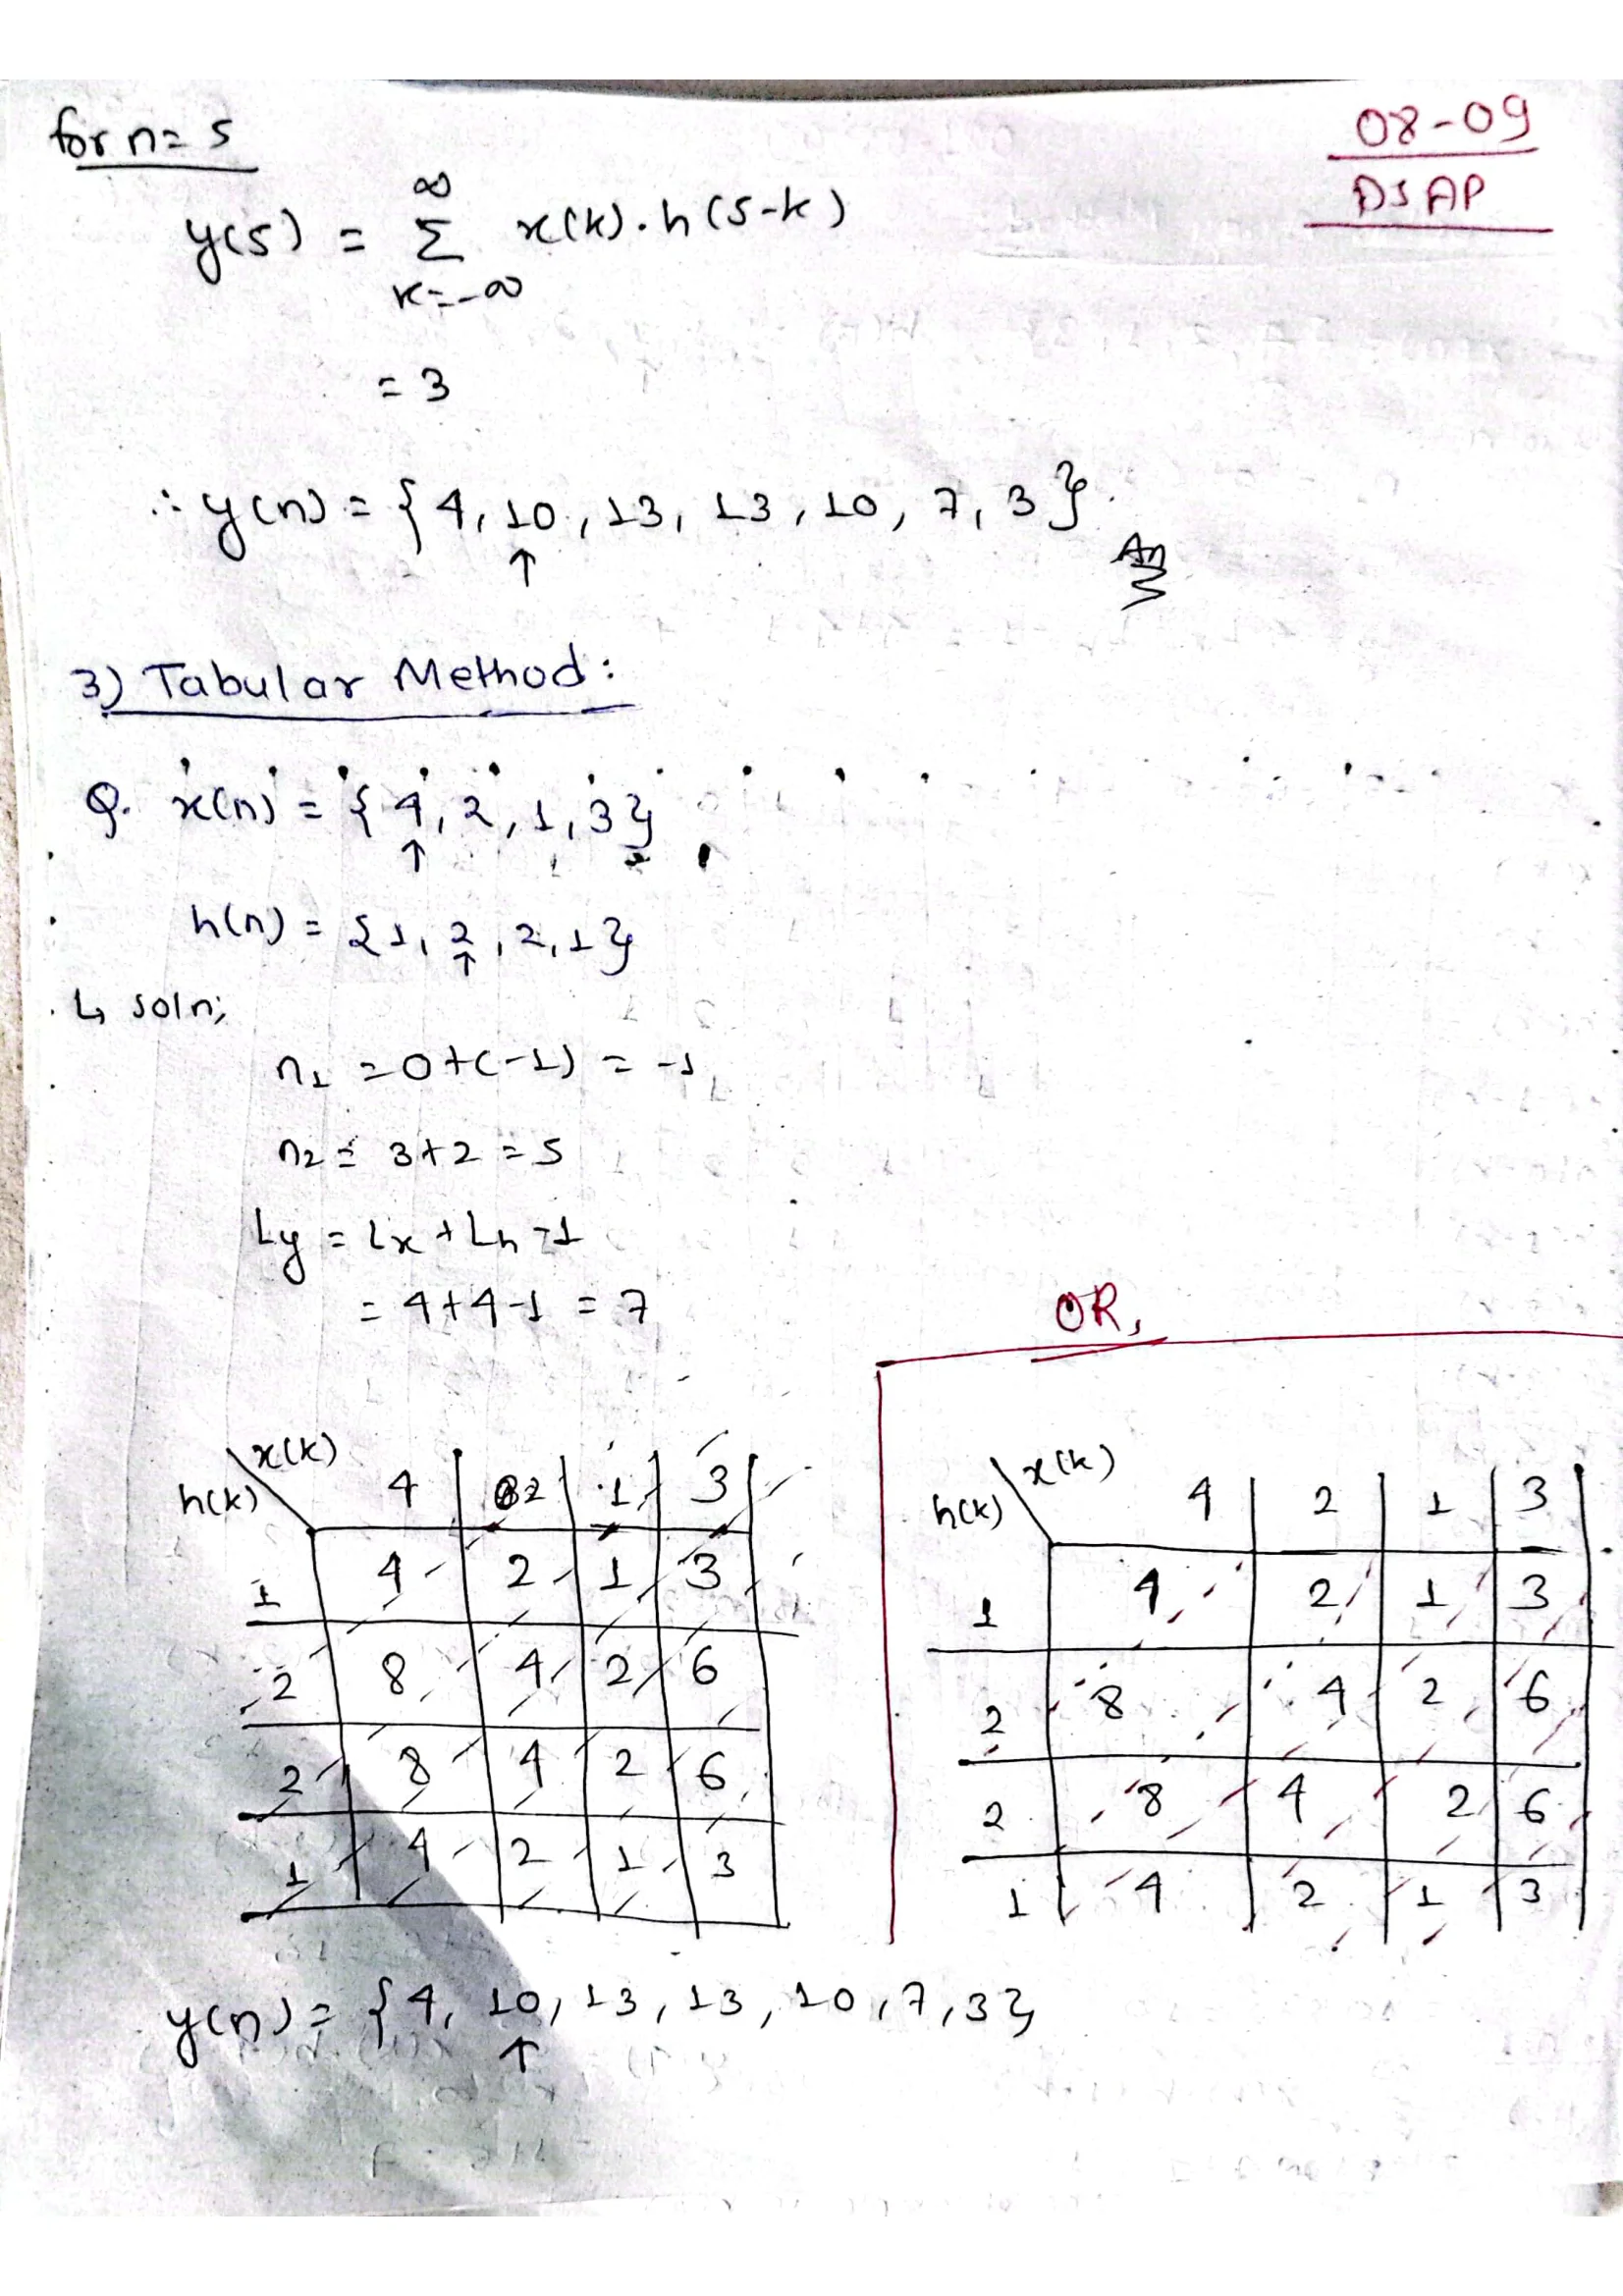 for n= 5
08-09
DSAP
y(5) = ∞ Σ k=-∞ x(k).h(5-k)
= 3
∴ y(n) = {4, 10, 13, 13, 10, 7, 3}.
↑
An
3) Tabular Method:
Q. x(n) = {4, 2, 1, 3}
↑
h(n) = {1, 2, 2, 1}
↑
↳ soln;
n1 = 0+(-1) = -1
n2 = 3+2 = 5
Ly = Lx + Lh -1
= 4+4-1 = 7
OR,
x(k)
h(k) 4 2 1 3
1 4 2 1 3
2 8 4 2 6
2 8 4 2 6
1 4 2 1 3
x(k)
h(k) 4 2 1 3
1 4 2 1 3
2 8 4 2 6
2 8 4 2 6
1 4 2 1 3
y(n) = {4, 10, 13, 13, 10, 7, 3}
↑